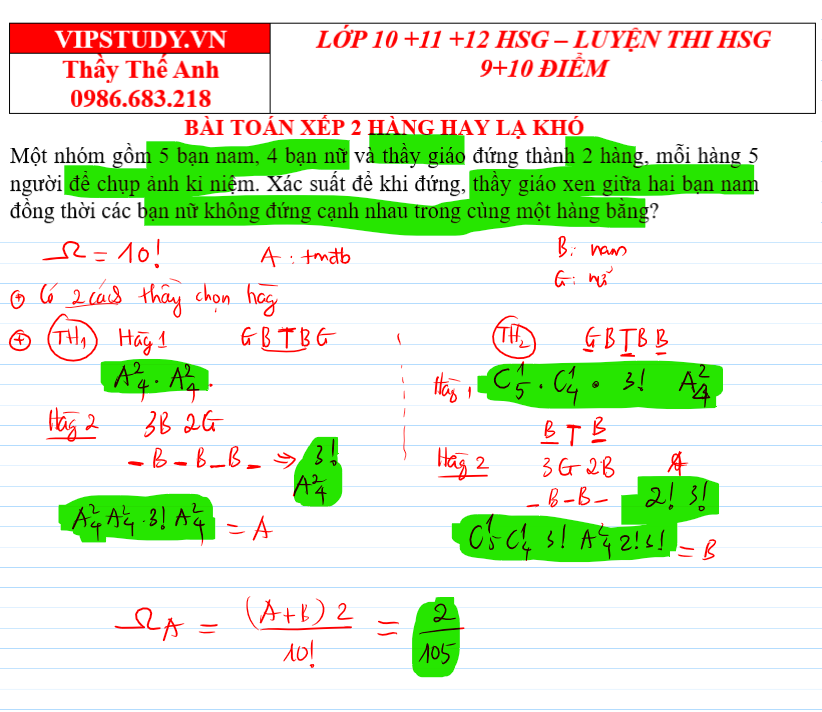 VIPSTUDY.VN
Thầy Thế Anh
0986.683.218
LỚP 10 +11 +12 HSG – LUYỆN THI HSG
9+10 ĐIỂM
BÀI TOÁN XẾP 2 HÀNG HAY LẠ KHÓ
Một nhóm gồm 5 bạn nam, 4 bạn nữ và thầy giáo đứng thành 2 hàng, mỗi hàng 5
người để chụp ảnh kỉ niệm. Xác suất để khi đứng, thầy giáo xen giữa hai bạn nam
đồng thời các bạn nữ không đứng cạnh nhau trong cùng một hàng bằng?
Ω = 10! A : tmđb B: nam
G: nữ
+ Có 2 cách thầy chọn hàg
+ TH1 Hàg 1 G B T B G TH2 G B T B B
A²₄ . A²₄ . Hàg 1 C¹₅ . C¹₄ . 3! A²₄
Hàg 2 3B 2G B T B
– B – B – B – ⇒ 3! A²₄ Hàg 2 3G 2B
– B – B – 2! 3!
A²₄ A²₄ . 3! A²₄ = A C¹₅ C¹₄ 3! A²₄ 2! 3! = B
Ω_A = (A+B) 2 / 10! = 2 / 105